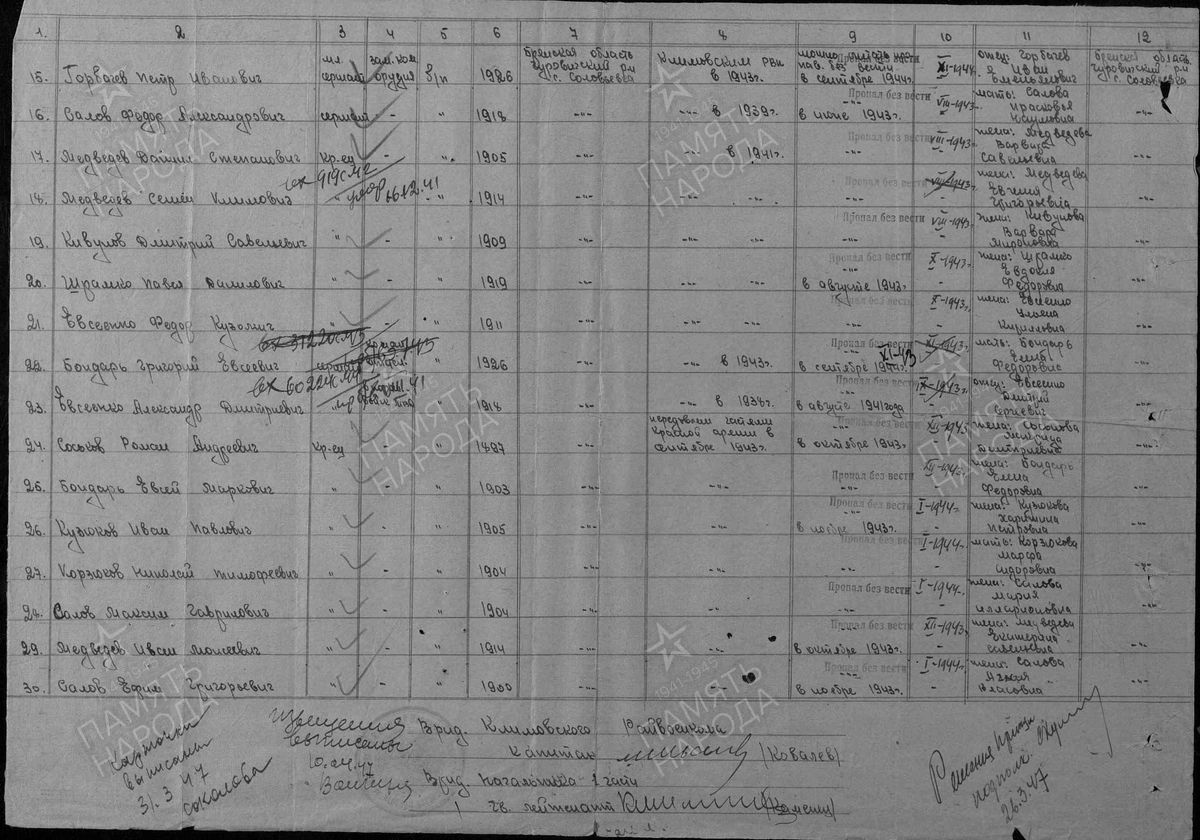 1. 2 3 4 5 6 7 8 9 10 11 12
15. Горбачев Петр Иванович мл. сержант зам. ком. орудия б/п 1926 Брянская область Чуровичский р-н с. Соловьевка Климовским РВК в 1943г. можно считать проп. без вести в сентябре 1944г. XI-1944г. отец: Горбачев Иван Емельянович Брянская область Чуровичский р-н с. Соловьевка
16. Салов Федор Александрович сержант - " 1918 -"- -"- в 1939г. Пропал без вести в июне 1943г. VIII-1943г. мать: Салова Прасковья Наумовна -"-
17. Медведев Даниил Степанович кр-ец - " 1905 -"- -"- в 1941г. Пропал без вести -"- VIII-1943г. жена: Медведева Варвара Савельевна -"-
вх 919см2
18. Медведев Семен Климович " - " 1914 -"- -"- -"- Пропал без вести -"- VIII-1943г. жена: Медведева Евгения Григорьевна -"-
19. Кивулов Дмитрий Савельевич " - " 1909 -"- -"- -"- Пропал без вести -"- VIII-1943г. жена: Кивулова Варвара Мироновна -"-
20. Шрамко Павел Данилович " - " 1919 -"- -"- -"- Пропал без вести в августе 1943г. X-1943г. жена: Шрамко Евдокия Федоровна -"-
21. Евсеенко Федор Кузьмич " - " 1911 -"- -"- -"- Пропал без вести -"- X-1943г. жена: Евсеенко Ульяна Кирилловна -"-
22. Бондарь Григорий Евсеевич " 1926 -"- -"- в 1943г. Пропал без вести в сентябре 1944г. XI-43 XI-1943г. мать: Бондарь Елена Федоровна -"-
вх 60224см4
23. Евсеенко Александр Дмитриевич " " 1918 -"- -"- в 1938г. Пропал без вести в августе 1941года X-1943г. отец: Евсеенко Дмитрий -"-
24. Роман Андреевич кр-ец - " 1897 -"- передовыми частями красной армии в сентябре 1943г. Пропал без вести в октябре 1943г. XII-1943г. жена: Дмитриевна -"-
25. Бондарь Евсей Маркович " - " 1903 -"- -"- Пропал без вести -"- XII-194 жена: Бондарь Елена Федоровна -"-
26. Кузюков Иван Павлович " - " 1905 -"- -"- Пропал без вести в ноябре 1943г. I-1944г. жена: Кузюкова Петровна -"-
27. Корзюков Николай Тимофеевич " - " 1904 -"- -"- Пропал без вести -"- I-1944г. мать: Корзюкова Марфа Сидоровна -"-
28. Салов Максим Гаврилович " - " 1904 -"- -"- Пропал без вести -"- I-1944г. жена: Салова Мария Илларионовна -"-
29. Медведев Иван Моисеевич " - " 1914 -"- -"- Пропал без вести в октябре 1943г. XII-1943г. жена: Медведева Екатерина Савельевна -"-
30. Салов Ефим Григорьевич " - " 1900 -"- -"- Пропал без вести в ноябре 1943г. I-1944г. жена: Салова Власовна -"-
Врид. Климовского Райвоенкома
капитан /Ковалев/
Врид. начальника 2 части
гв. лейтенант
Извещения
выписаны
10.04.47
карточки
выписаны
31.3.47
Соколова
26.3.47
ПАМЯТЬ НАРОДА
1941-1945